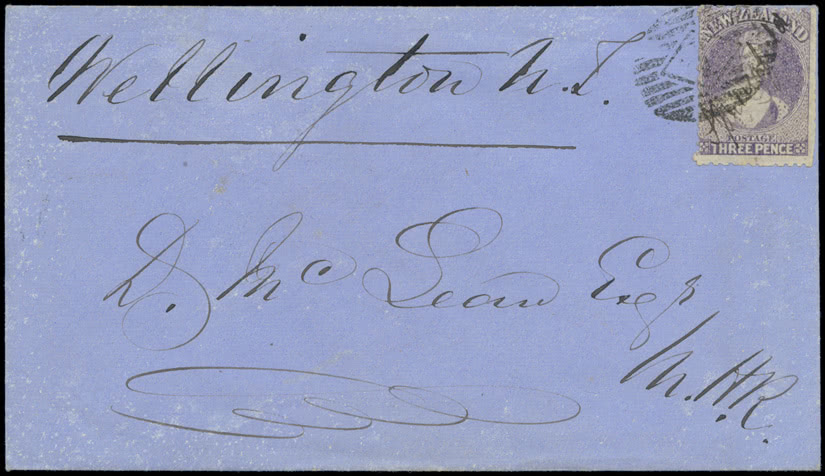 Wellington N.Z.
NEW ZEALAND
POSTAGE
THREE PENCE
D. McLean Esqr
M.H.R.